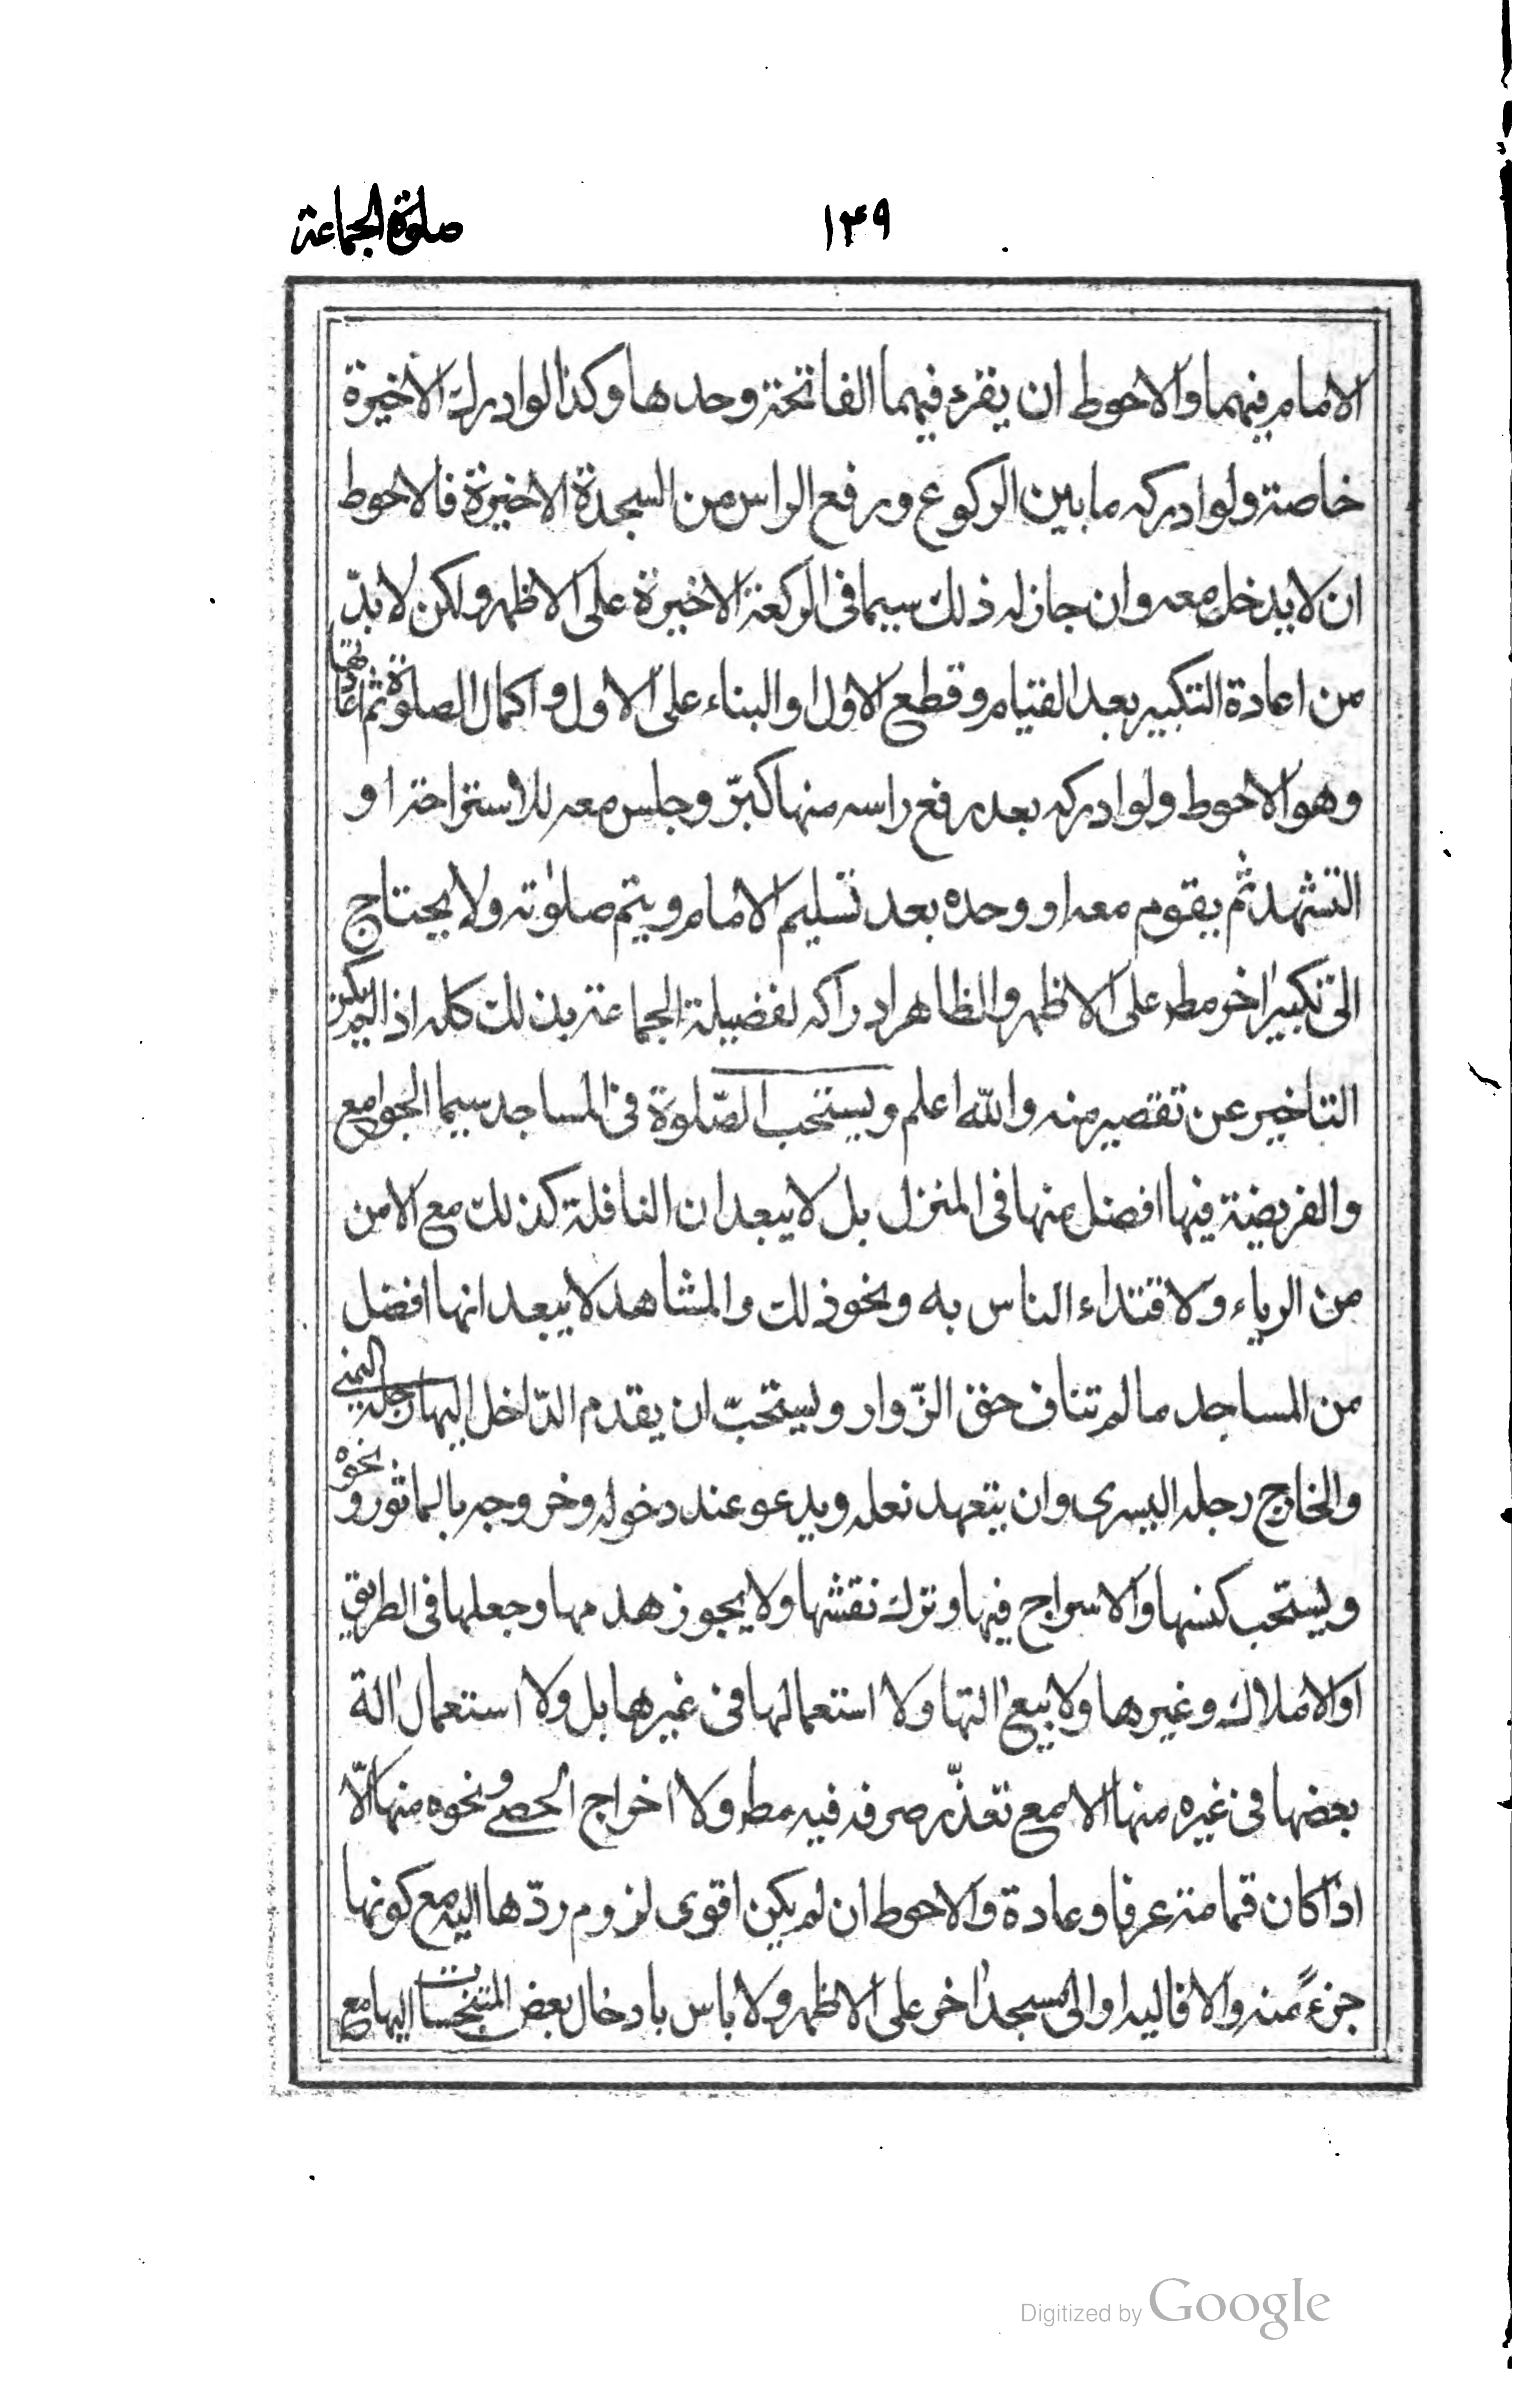 صلوة الجماعة
١٤٩
الامام فيهما والاحوط ان يقرء فيهما الفاتحة وحدها وكذا لوادرك الأخيرة
خاصة ولوادركه مابين الركوع ورفع الراس من السجدة الاخيرة فالاحوط
ان لايدخل معه وان جازله ذلك سيما فى الركعة الاخيرة على الاظهر ولكن لابدّ
من اعادة التكبير بعد القيام وقطع الاول او البناء على الاول واكمال الصلوة ثم اعادتها
وهو الاحوط ولوادركه بعد رفع راسه منها كبّر وجلس معه للاستراحة او
التشهد ثم يقوم معه او وحده بعد تسليم الامام ويتم صلوته ولا يحتاج
الى تكبير اخر مط على الاظهر والظاهر ادراكه لفضيلة الجماعة بذلك كله اذا لم يكن
التاخير عن تقصير منه والله اعلم ويستحب الصّلوة فى المساجد سيما الجوامع
والفريضة فيها افضل منها فى المنزل بل لا يبعد ان النافلة كذلك مع الامن
من الرياء ولاقتداء الناس به ونحو ذلك والمشاهد لا يبعد انها افضل
من المساجد مالم تناف حق الزّوار ويستحبّ ان يقدم الدّاخل اليها رجله اليمنى
والخارج رجله اليسرى وان يتعهد نعله ويدعو عند دخوله وخروجه بالماثور ونحوه
ويستحب كنسها والاسراج فيها وترك نقشها ولا يجوز هدمها وجعلها فى الطريق
او الاملاك وغيرها ولا بيع التها ولا استعمالها فى غيرها بل ولا استعمال الة
بعضها فى غيره منها الا مع تعذّر صرفه فيه مط ولا اخراج الحصى ونحوه منها الّا
اذا كان قمامة عرفا وعادة والاحوط ان لم يكن اقوى لزوم ردّها اليه مع كونها
جزءً منه والا فاليه او الى مسجد اخر على الاظهر ولا باس بادخال بعض المتنجسات اليها مع
Digitized by Google